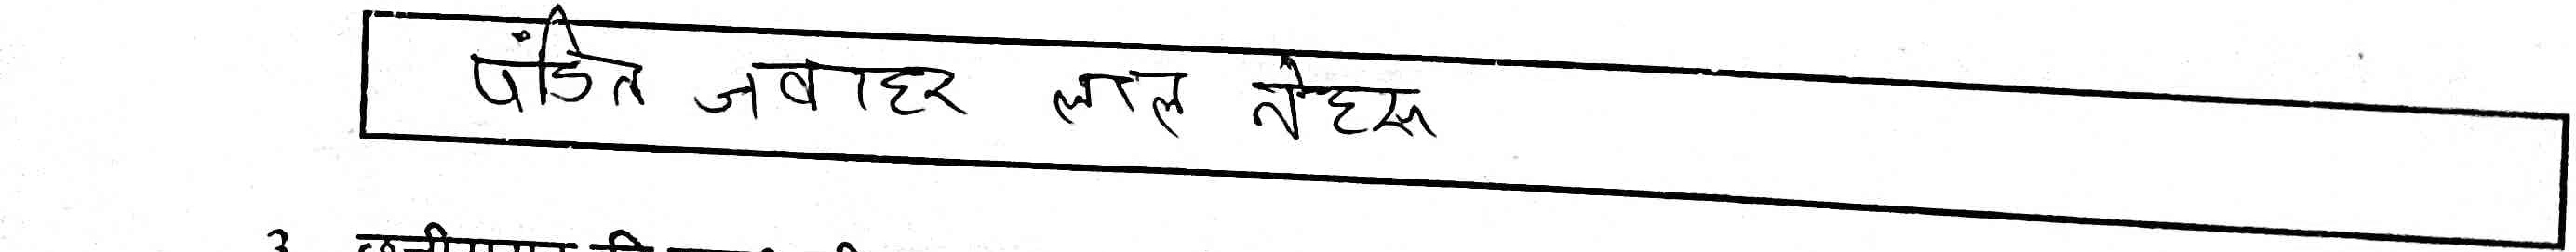 पंडित जवाहर लाल नेहरू
3.